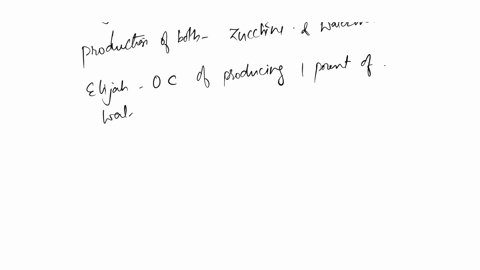 production of both - Zucchini & 
Elijah - OC of producing 1 pount of .
wal